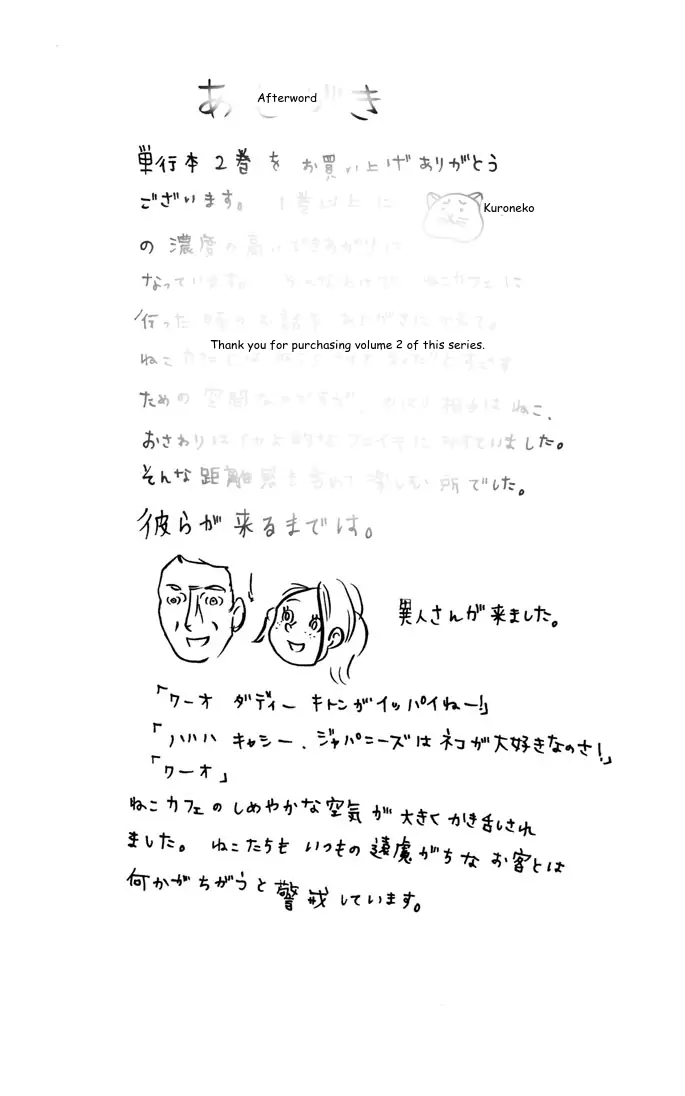 あとがき
Afterword
単行本2巻をお買い上げありがとう
ございます。1巻以上に
Kuroneko
の濃度の高いできあがりに
なっています。そんなわけで、ねこカフェに
行った時のお話をあとがきに
Thank you for purchasing volume 2 of this series.
ねこカフェとはねこと
ための空間なのですが、やはり相手はねこ、
おさわりは していました。
そんな距離感も含めて楽しむ所でした。
彼らが来るまでは。
異人さんが来ました。
「ワーオ ダディー キトンがイッパイねー!」
「ハハハ キャシー、ジャパニーズはネコが大好きなのさ!」
「ワーオ」
ねこカフェのしめやかな空気が大きくかき乱され
ました。ねこたちもいつもの遠慮がちなお客とは
何かがちがうと警戒しています。